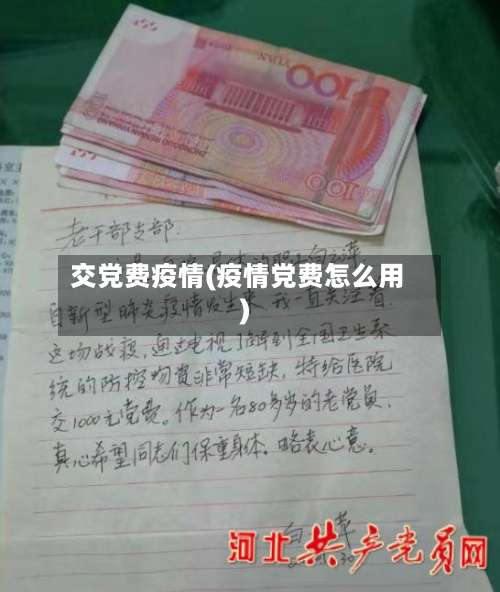 YUAN
100
ZHONGGUO RENMIN YINHANG
100
老干部支部:
交党费疫情(疫情党费怎么用
)
自新型肺炎疫情发生来，我一直关注着
这场战疫，通过电视了解到全国卫生系
统的防控物资非常短缺，特给医院
交1000元党费。作为一名80多岁的老党员，
真心希望同志们保重身体。略表心意。
河北共产党员网